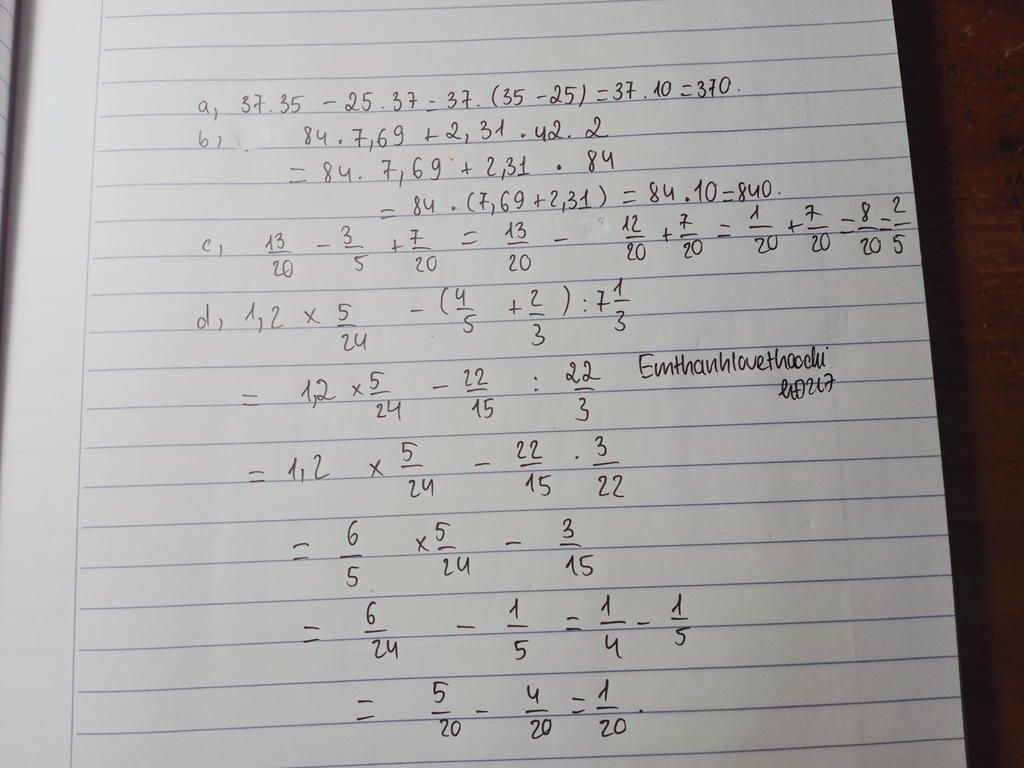 a, 37.35 - 25.37 = 37.(35 - 25) = 37.10 = 370.
b, 84.7,69 + 2,31.42.2
= 84.7,69 + 2,31.84
= 84.(7,69 + 2,31) = 84.10 = 840.
c, 13/20 - 3/5 + 7/20 = 13/20 - 12/20 + 7/20 = 1/20 + 7/20 = 8/20 = 2/5
d, 1,2 × 5/24 - (4/5 + 2/3) : 7 1/3
= 1,2 × 5/24 - 22/15 : 22/3
Emthanhlovethacchi
= 1,2 × 5/24 - 22/15 . 3/22
= 6/5 × 5/24 - 3/15
= 6/24 - 1/5 = 1/4 - 1/5
= 5/20 - 4/20 = 1/20.